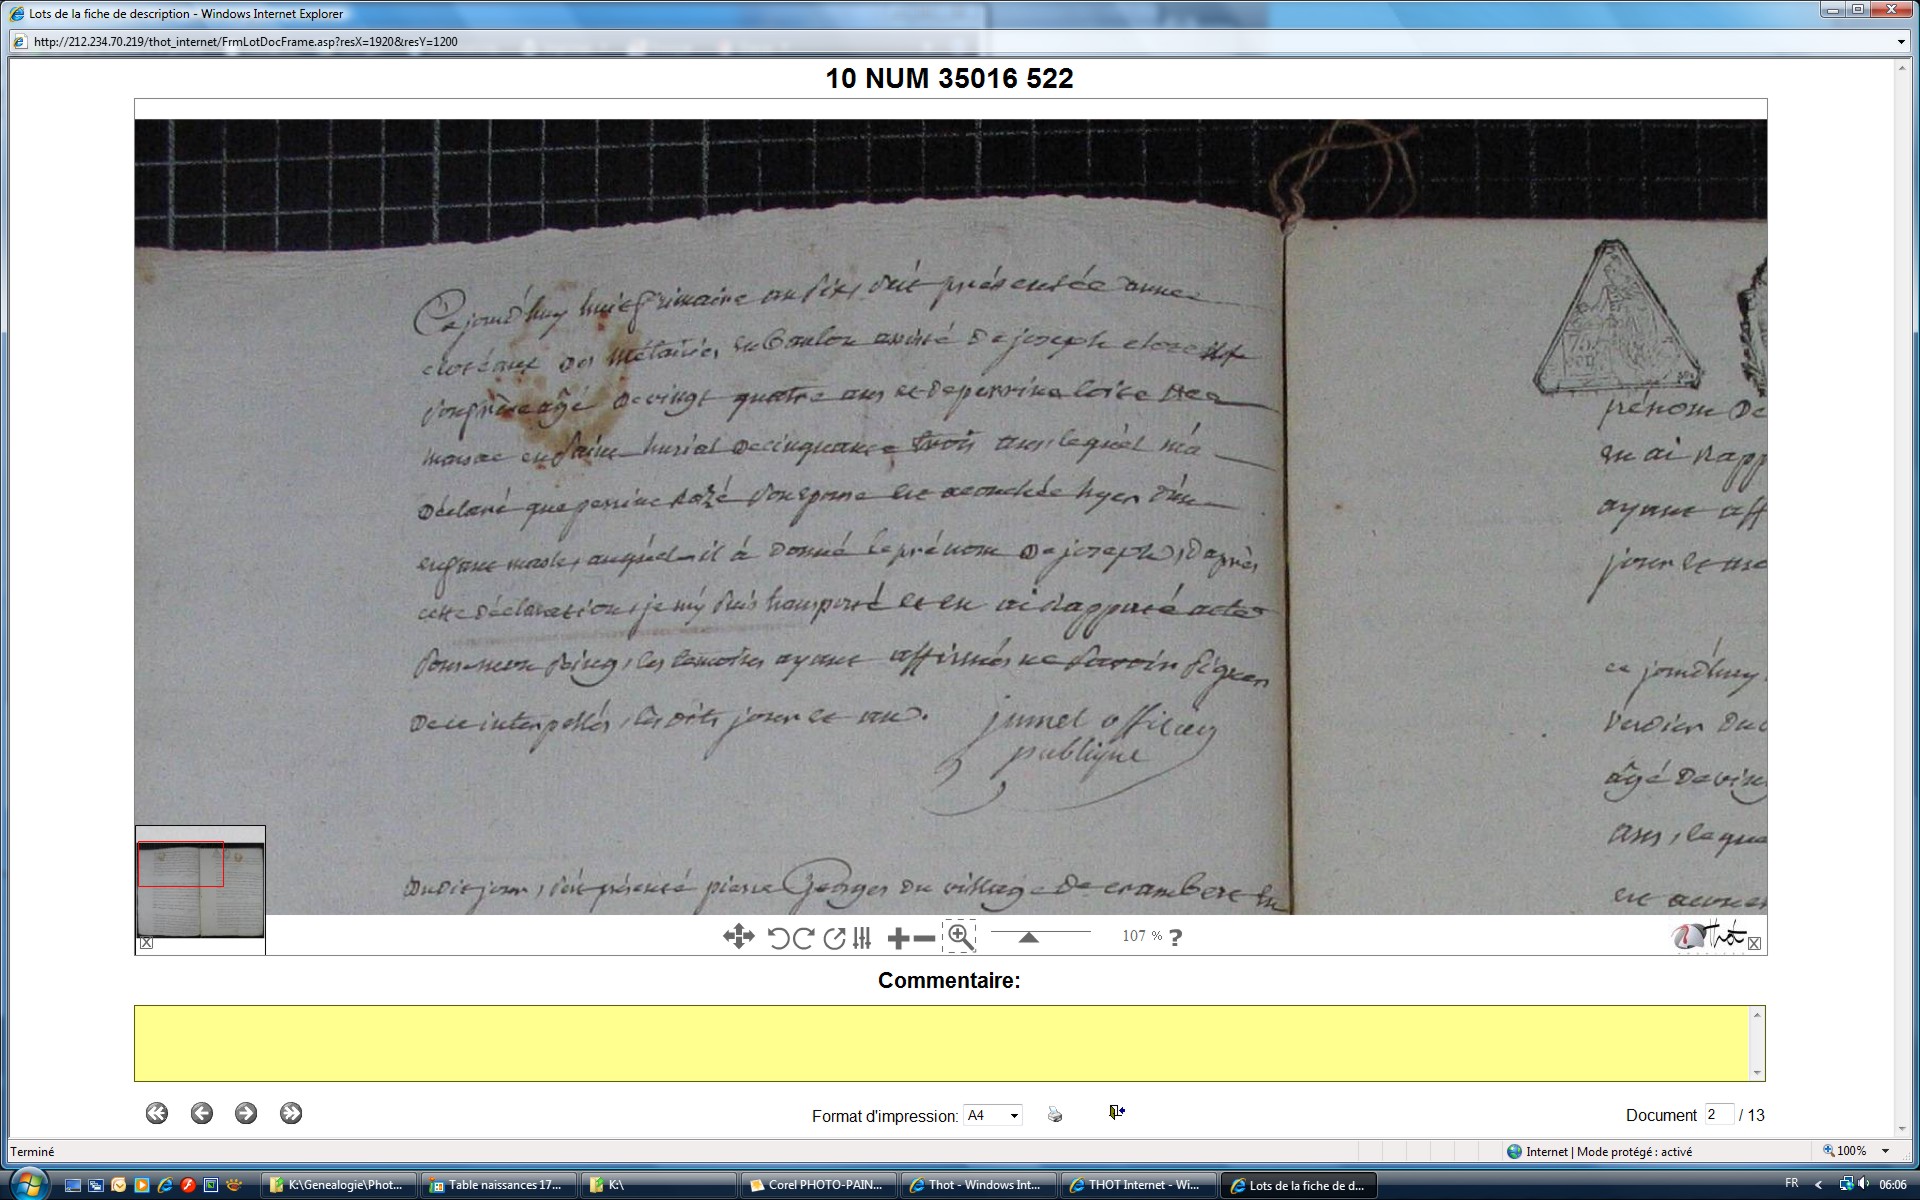 Lots de la fiche de description - Windows Internet Explorer
http://212.234.70.219/thot_internet/FrmLotDocFrame.asp?resX=1920&resY=1200
10 NUM 35016 522
Ce jourd'huy huit frimaire an six, s'ést présentée anne
closeaux des métairies en Baulon assisté de joseph
son frère agé de vingt quatre ans et de perrine
de cinquante trois ans, lequél m'a
déclaré que perrine son epouse est acouchée hyer d'un
enfant masle, auquél il á donné le prénom de joseph, d'aprés
cette déclaration, je m'y suis transporté et en ai rapporté acte
sous mon seing, les temoins ayant affirmés ne savoir signer
de ce interpellés, les dits jour et an.
jumel officier
publique
Dudit jour, s'ést présenté pierre Georges du village de en
prénom de
en ai rapp
ayant aff
jour et an
ce jourd'huy
Verdier du
âgé de ving
ans, leque
107 % ?
Thot
Commentaire:
Format d'impression: A4
Document 2 / 13
Terminé
Internet | Mode protégé : activé
100%
K:\Genealogie\Phot...
Table naissances 17...
K:\
Corel PHOTO-PAIN...
Thot - Windows Int...
THOT Internet - Wi...
Lots de la fiche de d...
FR
06:06